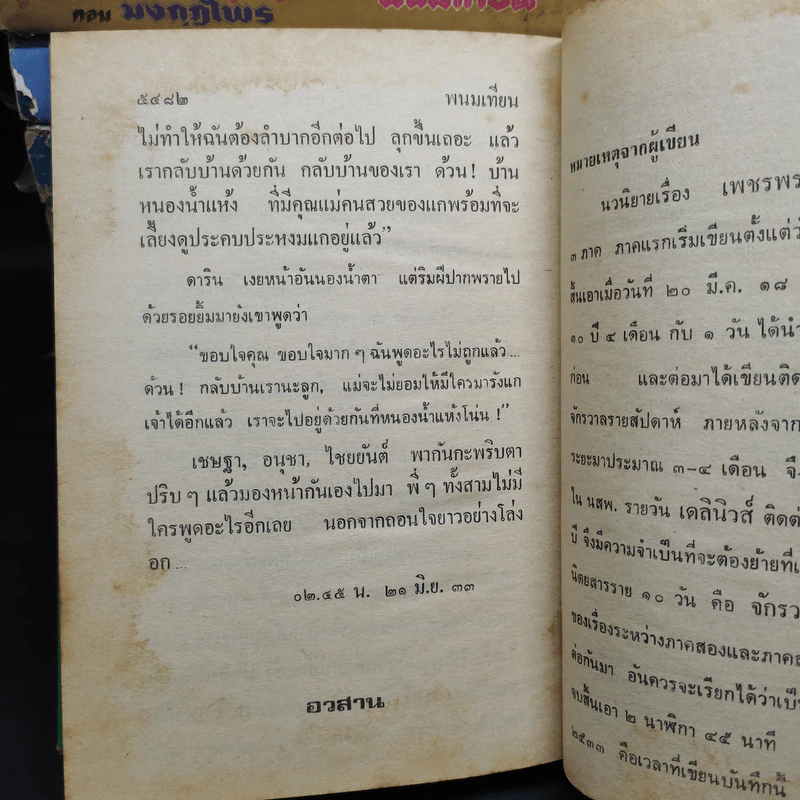 ตอน มงกุฎไพร
๕๔๘๒ พนมเทียน
ไม่ทำให้ฉันต้องลำบากอีกต่อไป ลุกขึ้นเถอะ แล้ว
เรากลับบ้านด้วยกัน กลับบ้านของเรา ด้วน! บ้าน
หนองน้ำแห้ง ที่มีคุณแม่คนสวยของแกพร้อมที่จะ
เลี้ยงดูประคบประหงมแกอยู่แล้ว”
ดาริน เงยหน้าอันนองน้ำตา แต่ริมฝีปากพรายไป
ด้วยรอยยิ้มมายังเขาพูดว่า
“ขอบใจคุณ ขอบใจมาก ๆ ฉันพูดอะไรไม่ถูกแล้ว....
ด้วน! กลับบ้านเรานะลูก, แม่จะไม่ยอมให้มีใครมารังแก
เจ้าได้อีกแล้ว เราจะไปอยู่ด้วยกันที่หนองน้ำแห้งโน่น!”
เชษฐา, อนุชา, ไชยยันต์ พากันกะพริบตา
ปริบ ๆ แล้วมองหน้ากันเองไปมา พี่ ๆ ทั้งสามไม่มี
ใครพูดอะไรอีกเลย นอกจากถอนใจยาวอย่างโล่ง
อก....
๐๒.๔๕ น. ๒๑ มิ.ย. ๓๓
อวสาน
หมายเหตุจากผู้เขียน
นวนิยายเรื่อง เพชรพร
๓ ภาค ภาคแรกเริ่มเขียนตั้งแต่ว
สิ้นเอาเมื่อวันที่ ๒๐ มี.ค. ๑๘
๑๐ ปี ๔ เดือน กับ ๑ วัน ได้นำ
ก่อน และต่อมาได้เขียนติด
จักรวาลรายสัปดาห์ ภายหลังจาก
ระยะมาประมาณ ๓-๔ เดือน จึ
ใน นสพ. รายวัน เดลินิวส์ ติดต่
ปี จึงมีความจำเป็นที่จะต้องย้ายที่เ
นิตยสารราย ๑๐ วัน คือ จักรว
ของเรื่องระหว่างภาคสองและภาคส
ต่อกันมา อันควรจะเรียกได้ว่าเป็
จบสิ้นเอา ๒ นาฬิกา ๔๕ นาที
๒๕๓๓ คือเวลาที่เขียนบันทึกนี้